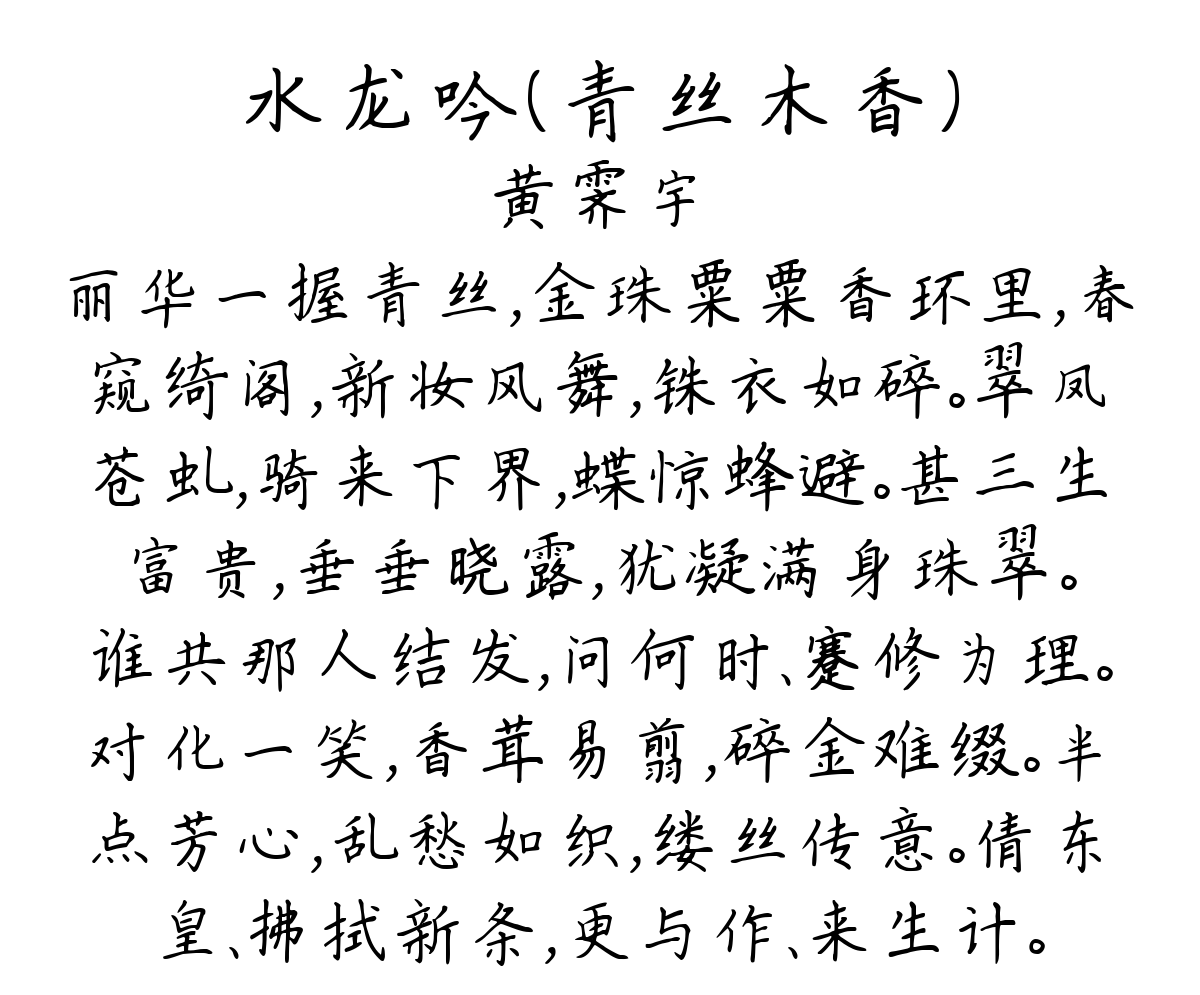 水龙吟(青丝木香)
黄霁宇
丽华一握青丝,金珠粟粟香环里,春
窥绮阁,新妆风舞,铢衣如碎。翠凤
苍虬,骑来下界,蝶惊蜂避。甚三生
富贵,垂垂晓露,犹凝满身珠翠。
谁共那人结发,问何时、蹇修为理。
对化一笑,香茸易剪,碎金难缀。半
点芳心,乱愁如织,缕丝传意。倩东
皇、拂拭新条,更与作、来生计。